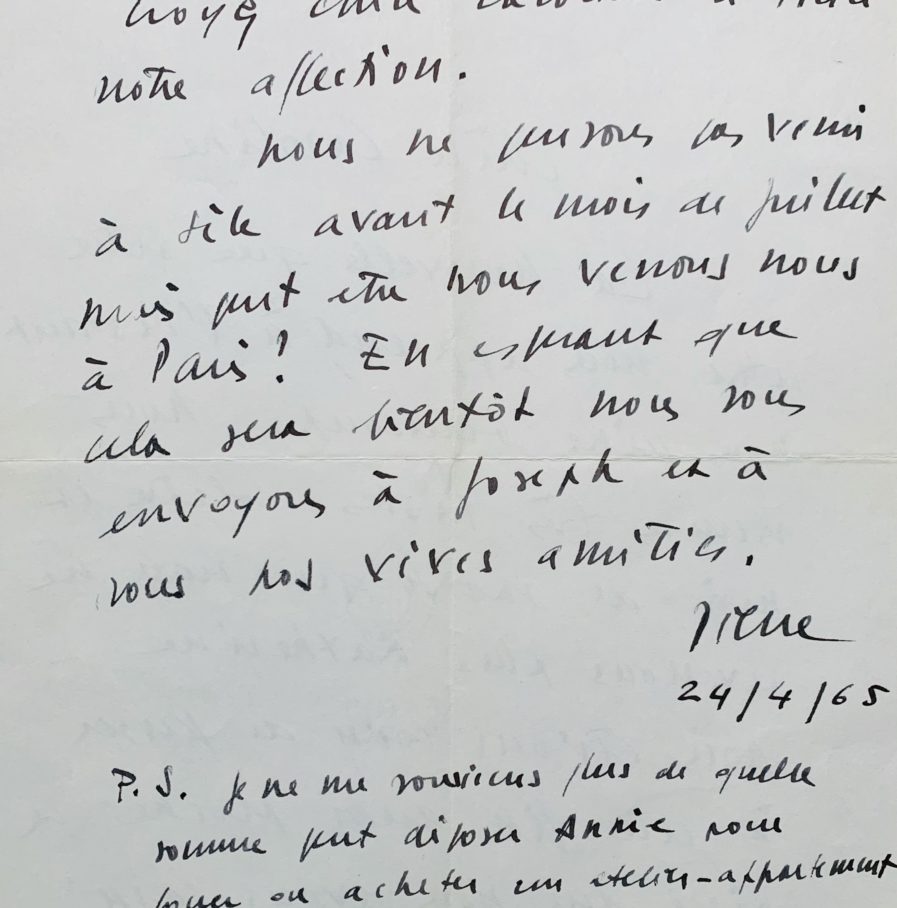 notre affection.
nous ne pensons pas venir
à Sète avant le mois de Juillet
mais peut etre nous verrons nous
à Paris! En esperant que
cela sera bientôt nous vous
envoyons à Joseph et à
vous nos vives amitiés.
Pierre
24/4/65
P.S. Je ne me souviens plus de quelle
somme peut disposer Annie pour
louer ou acheter un atelier-appartement